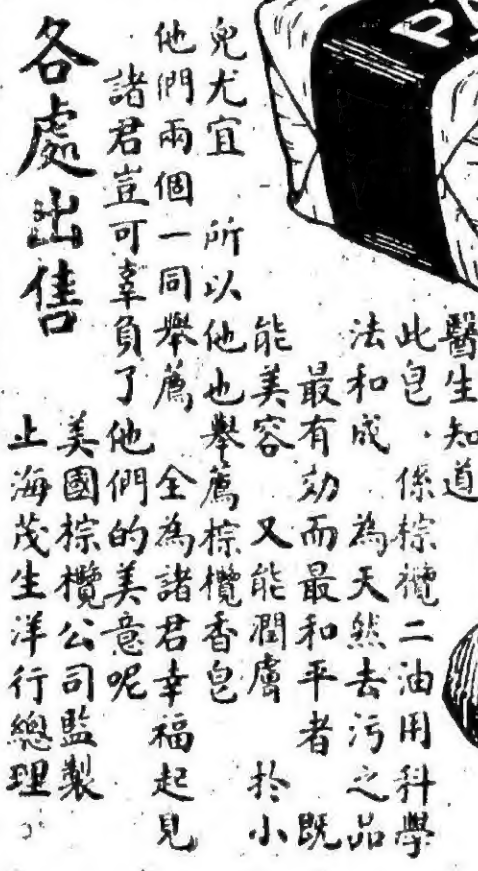 醫生知道
此皂 係棕欖二油用科學
法和成 為天然去污之品
最有効而最和平者 既
能美容 又能潤膚 於小
兒尤宜 所以他也舉薦棕欖香皂
他們兩個一同舉薦 全為諸君幸福起見
諸君豈可辜負了他們的美意呢
各處出售
美國棕欖公司監製
上海茂生洋行總理